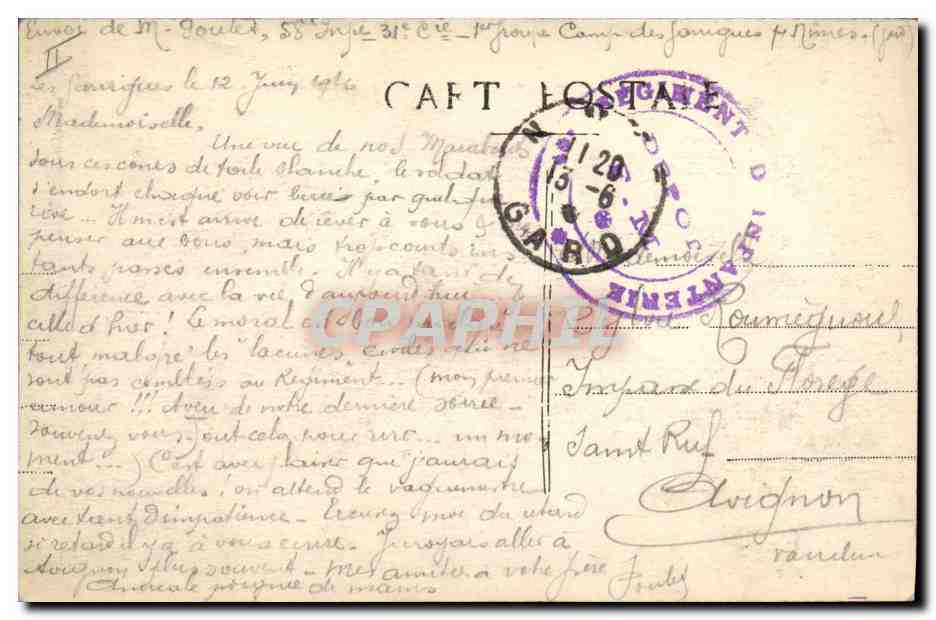 Envoi de M. Joulet, 58e Infie 31e Cie - 1er groupe Camp des Garrigues Nîmes. (Gard)
II
Les Garrigues le 12 Juin 1916
CARTE POSTALE
Mademoiselle,
Une vue de nos Marabouts
sous ces cônes de toile blanche, le soldat
s'endort chaque soir bercé par quelque
rêve ... Il m'est arrivé de rêver à vous
penser aux bons, mais trop courts ins
tants passés ensemble. Il y a tant de
différence avec la vie d'aujourd'hui
celle d'hier ! Le moral est bon
tout malgré les lacunes, qui ne
sont pas comblées au Régiment ... (mon premier
amour !!! Aveu de notre dernière soirée -
souvenez vous. Tout cela pour rire ... un mo
ment ...) C'est avec plaisir que j'aurais
de vos nouvelles ! on attend le vaguemestre
avec tant d'impatience - Excusez moi du retard
si retard il y a à vous écrire. Je croyais aller à
Avignon plus souvent - Mes amitiés à votre frère
Amicale poignée de mains
Joulet
REGIMENT D'INFANTERIE
DEPOT
11 20
13 - 6
GARD
Mademoiselle
Roumégnoul
Impasse du Florège
Saint Ruf
Avignon
Vaucluse
CPAPHIL